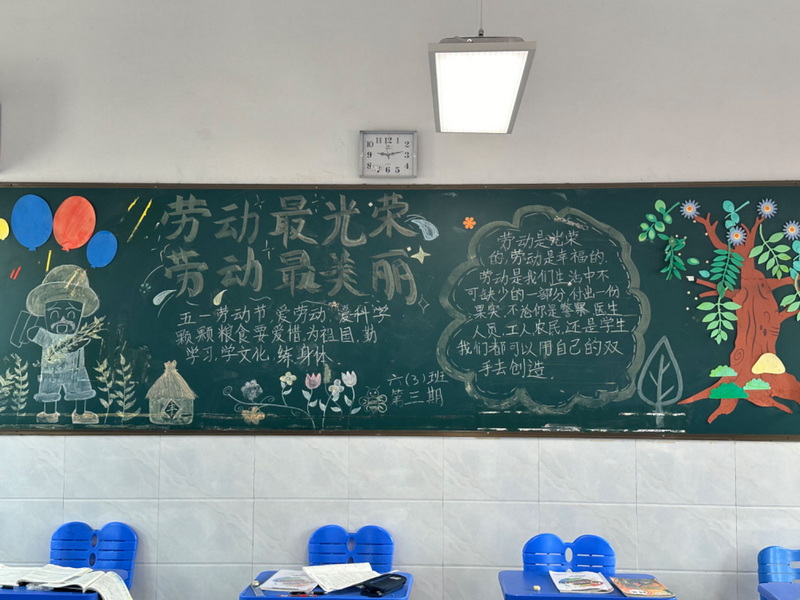 劳动最光荣
劳动最美丽
五一劳动节,爱劳动,爱科学
颗颗粮食要爱惜,为祖国,勤
学习,学文化,练身体.
六(3)班
第三期
劳动是光荣
的,劳动是幸福的.
劳动是我们生活中不
可缺少的一部分,付出一份
果实,不论你是警察 医生
人员,工人农民,还是学生
我们都可以用自己的双
手去创造.
10 11 12 1 2 3 4 5 6 7 8 9